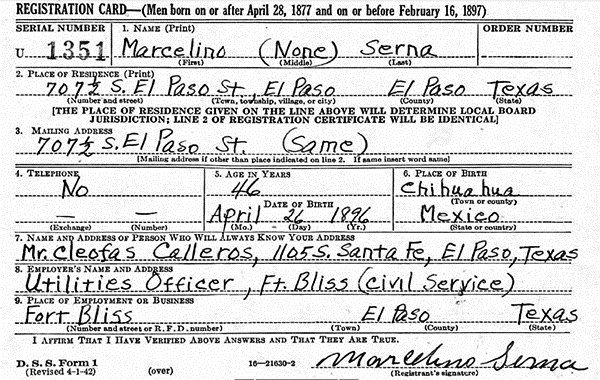 REGISTRATION CARD—(Men born on or after April 28, 1877 and on or before February 16, 1897)
SERIAL NUMBER 1. NAME (Print) ORDER NUMBER
U 1351 Marcelino (None) Serna
(First) (Middle) (Last)
2. PLACE OF RESIDENCE (Print)
707½ S. El Paso St, El Paso El Paso Texas
(Number and street) (Town, township, village, or city) (County) (State)
[THE PLACE OF RESIDENCE GIVEN ON THE LINE ABOVE WILL DETERMINE LOCAL BOARD
JURISDICTION; LINE 2 OF REGISTRATION CERTIFICATE WILL BE IDENTICAL]
3. MAILING ADDRESS
707½ S. El Paso St. (Same)
[Mailing address if other than place indicated on line 2. If same insert word same]
4. TELEPHONE 5. AGE IN YEARS 6. PLACE OF BIRTH
No 46 Chihuahua
DATE OF BIRTH (Town or county)
— — April 26 1896 Mexico
(Exchange) (Number) (Mo.) (Day) (Yr.) (State or country)
7. NAME AND ADDRESS OF PERSON WHO WILL ALWAYS KNOW YOUR ADDRESS
Mr. Cleofas Calleros, 1105 S. Santa Fe, El Paso, Texas
8. EMPLOYER'S NAME AND ADDRESS
Utilities Officer, Ft. Bliss (Civil Service)
9. PLACE OF EMPLOYMENT OR BUSINESS
Fort Bliss El Paso Texas
(Number and street or R. F. D. number) (Town) (County) (State)
I AFFIRM THAT I HAVE VERIFIED ABOVE ANSWERS AND THAT THEY ARE TRUE.
D. S. S. Form 1 16—21630-2 Marcelino Serna
(Revised 4-1-42) (over) (Registrant's signature)